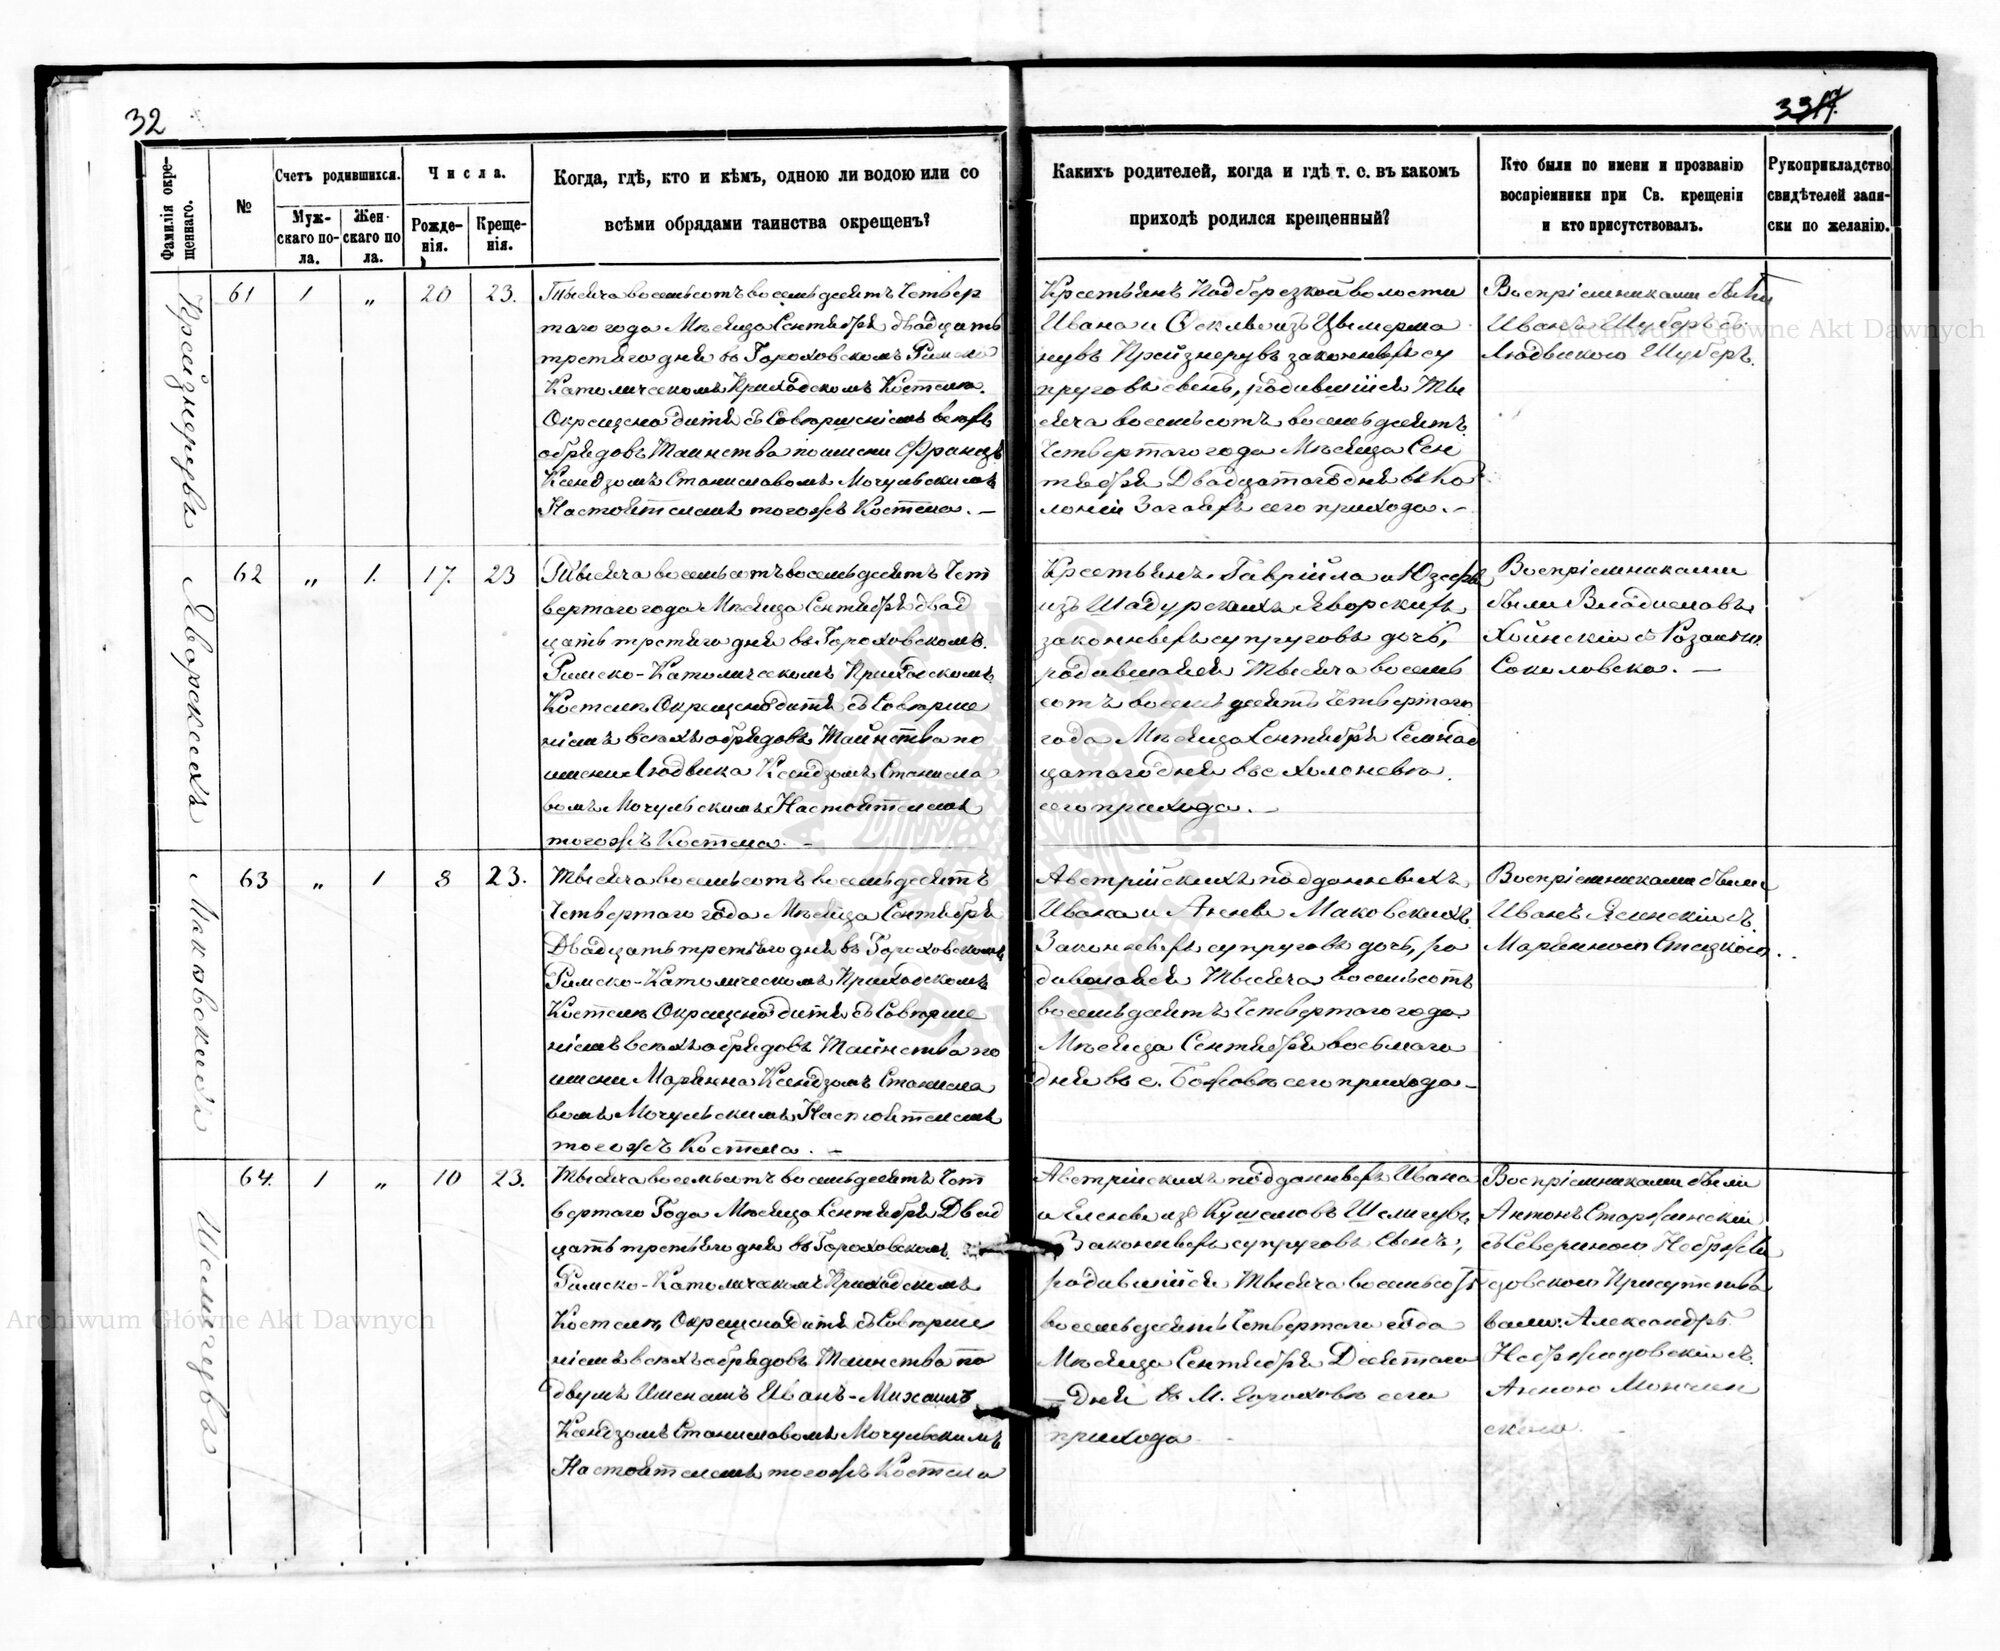 32
33
Фамилія окре-
щеннаго.
№
Счетъ родившихся.
Муж-
скаго по-
ла.
Жен-
скаго по
ла.
Числа.
Рожде-
нія.
Креще-
нія.
Когда, гдѣ, кто и кѣмъ, одною ли водою или со
всѣми обрядами таинства окрещенъ?
Какихъ родителей, когда и гдѣ т. е. въ какомъ
приходѣ родился крещенный?
Кто были по имени и прозванію
воспріемники при Св. крещеніи
и кто присутствовалъ.
Рукоприкладство
свидѣтелей запи-
ски по желанію.
61
1
„
20
23.
Тысяча восемьсотъ восемьдесятъ Четвер
таго года Мѣсяца Сентября двадцать
третяго дня въ Гороховскомъ Римско
Католическомъ Приходскомъ Костелѣ.
Окрещено дитя съ Совершеніемъ всѣхъ
обрядовъ Таинства по имени Францъ
Ксендзомъ Станиславомъ Мочульскимъ
Настоятелемъ тогожъ Костела. —
Крестьянъ Подберезкой волости
Ивана и изъ
законныхъ су
пруговъ сынъ, родившійся Ты
сяча восемьсотъ восемьдесятъ
Четвертаго года Мѣсяца Сен
тября Двадцатаго дня въ Ко
лоніи сего прихода. —
Воспріемниками были
Иванъ Шуберъ съ
Людвикою Шуберъ.
Яворскихъ
62
„
1.
17.
23
Тысяча восемьсотъ восемьдесятъ Чет
вертаго года Мѣсяца Сентября двад
цать третяго дня въ Гороховскомъ
Римско-Католическомъ Приходскомъ
Костелѣ Окрещено дитя съ Соверше
ніемъ всѣхъ обрядовъ Таинства по
имени Людвика Ксендзомъ Станисла
вомъ Мочульскимъ Настоятелемъ
тогожъ Костела. —
Крестьянъ Гавріила и Юзефы
изъ Шадурскихъ Яворскихъ
законныхъ супруговъ дочь,
родившаяся Тысяча восемь
сотъ восемьдесятъ Четвертаго
года Мѣсяца Сентября Семнад
цатаго дня въ с. Холоневѣ
сего прихода. —
Воспріемниками
были Владиславъ
съ
Соколовска. —
Маковскихъ
63
„
1
8
23.
Тысяча восемьсотъ восемьдесятъ
Четвертаго года Мѣсяца Сентября
Двадцать третяго дня въ Гороховскомъ
Римско-Католическомъ Приходскомъ
Костелѣ Окрещено дитя съ Соверше
ніемъ всѣхъ обрядовъ Таинства по
имени Марянна Ксендзомъ Станисла
вомъ Мочульскимъ Настоятелемъ
тогожъ Костела. —
Австрійскихъ подданныхъ
Ивана и Анны Маковскихъ
Законныхъ супруговъ дочь, ро
дившаяся Тысяча восемьсотъ
восемьдесятъ Четвертаго года
Мѣсяца Сентября восьмаго
дня въ с. сего прихода —
Воспріемниками были
Иванъ Ясинскій съ
Марянною
64.
1
„
10
23.
Тысяча восемьсотъ восемьдесятъ Чет
вертаго Года Мѣсяца Сентября Двад
цать третяго дня въ Гороховскомъ
Римско-Католическомъ Приходскомъ
Костелѣ Окрещено дитя съ Соверше
ніемъ всѣхъ обрядовъ Таинства по
двумъ Именамъ Иванъ-Михаилъ
Ксендзомъ Станиславомъ Мочульскимъ
Настоятелемъ тогожъ Костела
Австрійскихъ подданныхъ Ивана
и Елены изъ
Законныхъ супруговъ Сынъ,
родившійся Тысяча восемьсотъ
восемьдесятъ Четвертаго года
Мѣсяца Сентября Десятаго
Дня въ М. Гороховѣ сего
прихода
Воспріемниками были
Антонъ
съ Севериною
Присутство
вали: Александръ
съ
Анною
скою.
Archiwum Główne Akt Dawnych
Archiwum Główne Akt Dawnych